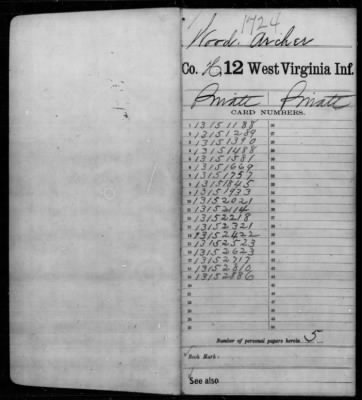 1724
Wood, Archer
Co. H, 12 West Virginia Inf.
Private Private
CARD NUMBERS.
1 13151188
2 13151289
3 13151390
4 13151488
5 13151581
6 13151669
7 13151757
8 13151845
9 13151933
10 13152021
11 13152114
12 13152218
13 13152321
14 13152422
15 13152523
16 13152623
17 13152717
18 13152810
19 13152886
Number of personal papers herein 5
Book Mark:
See also